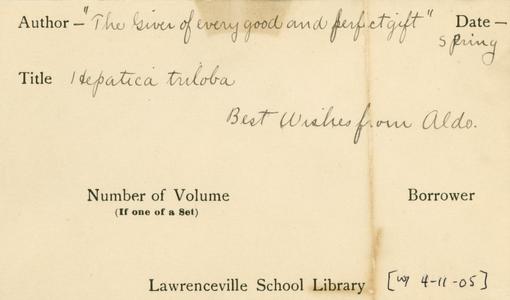 Author — "The Giver of every good and perfect gift" Date —
Spring
Title Hepatica triloba
Best Wishes from Aldo.
Number of Volume Borrower
(If one of a Set)
Lawrenceville School Library [w/ 4-11-05]